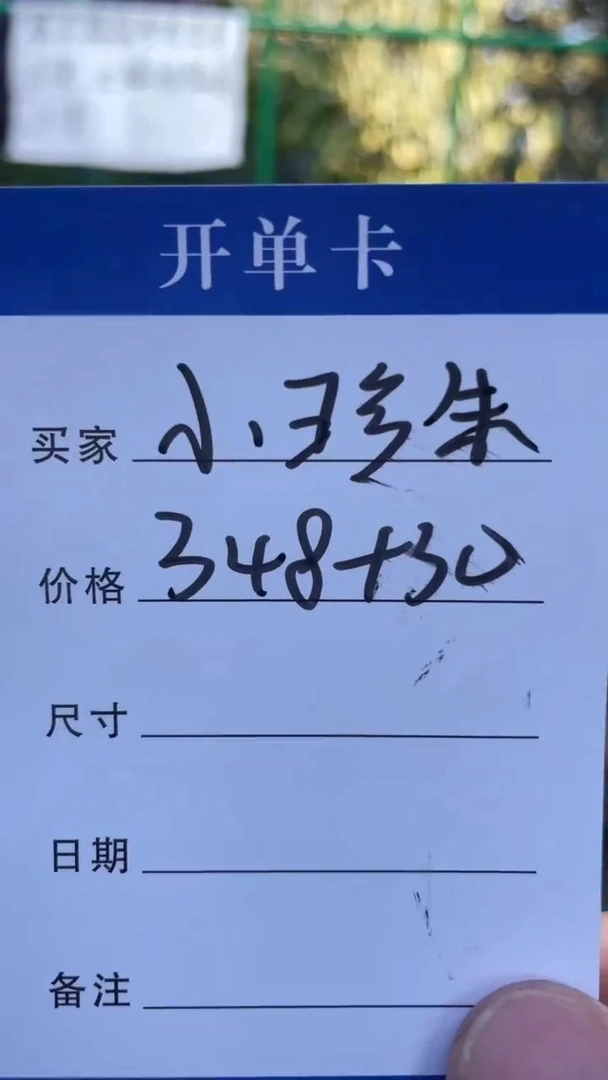 开单卡
买家 小珍朱
价格 348+30
尺寸
日期
备注